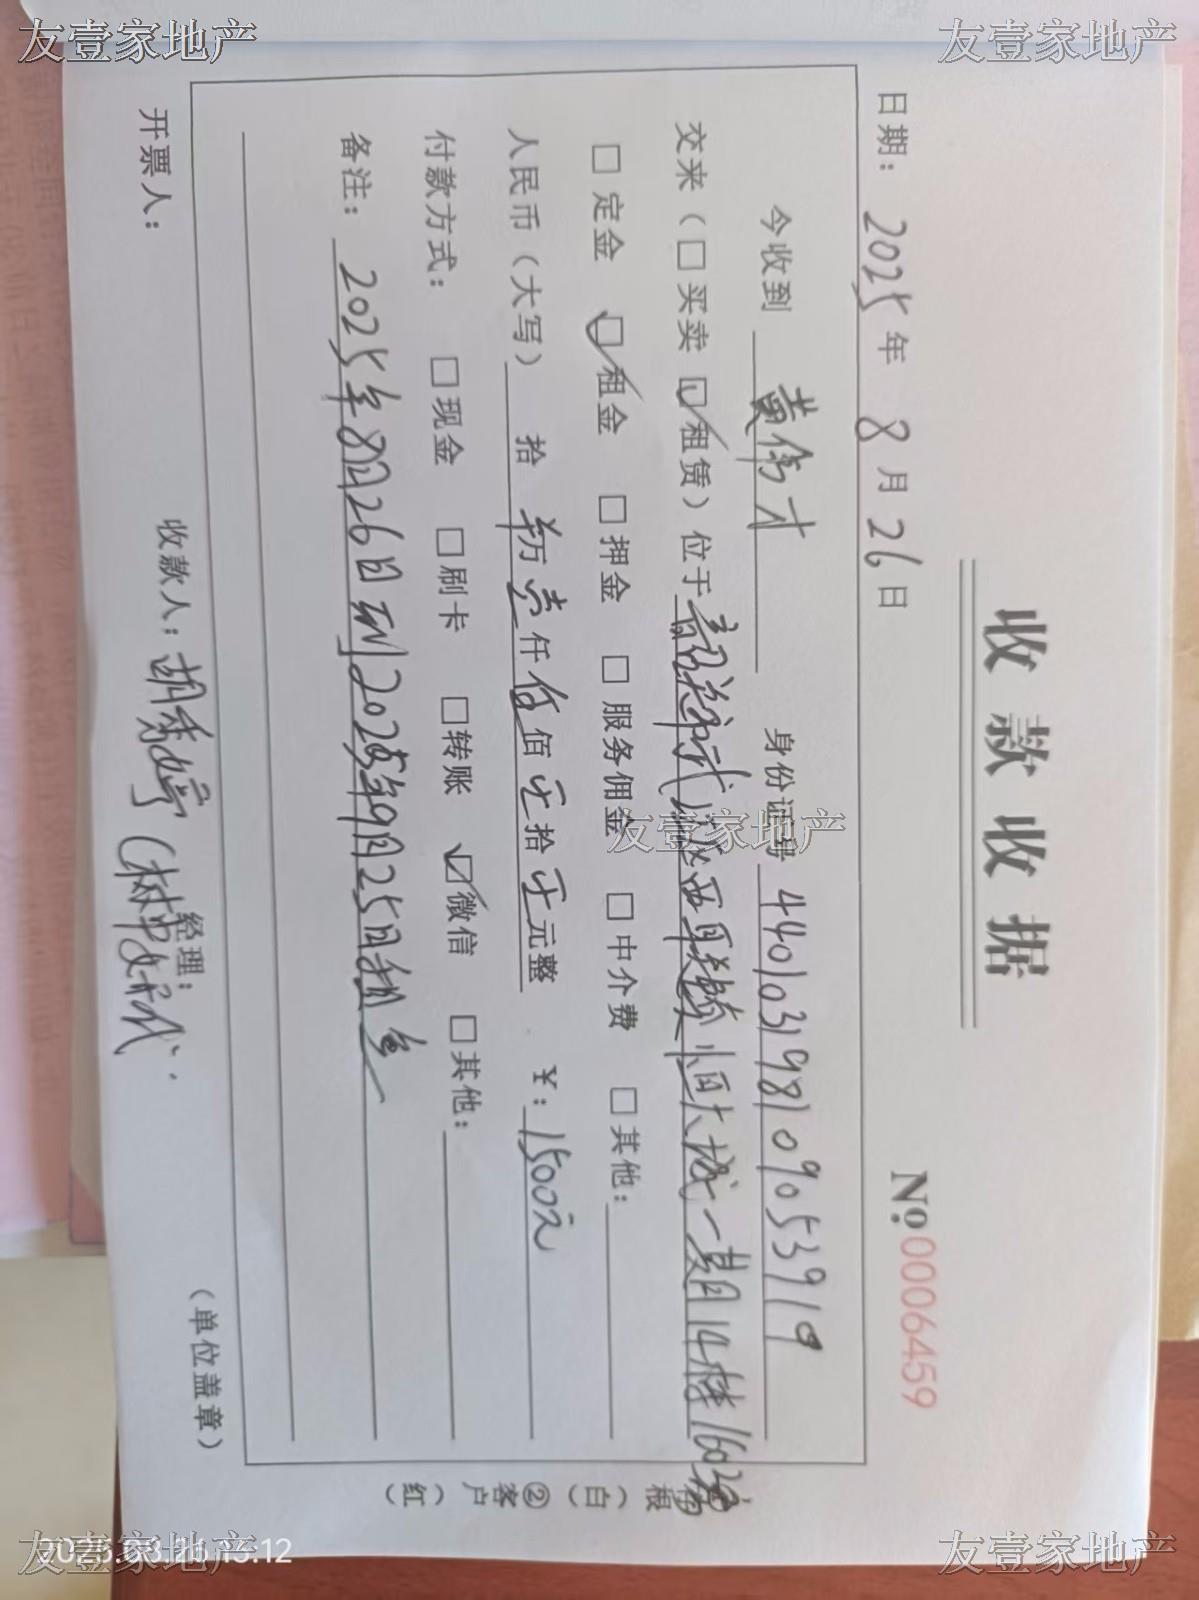 收款收据
No.0006459
日期：2025年8月26日
今收到 黄伟才 身份证号 440103198109053919
交来（□买卖 ☑租赁）位于 城一期14栋1603房
□定金 ☑租金 □押金 □服务佣金 □中介费 □其他：
人民币（大写） 拾 万壹仟伍佰零拾零元整 ￥：1500元
付款方式：□现金 □刷卡 □转账 ☑微信 □其他：
备注：2025年8月26日到2025年9月25日租金
开票人： 收款人：胡秀婷 经理： （单位盖章）
根（白）②客户（红）
友壹家地产
友壹家地产
友壹家地产
友壹家地产
友壹家地产
2025.08.26 15:12